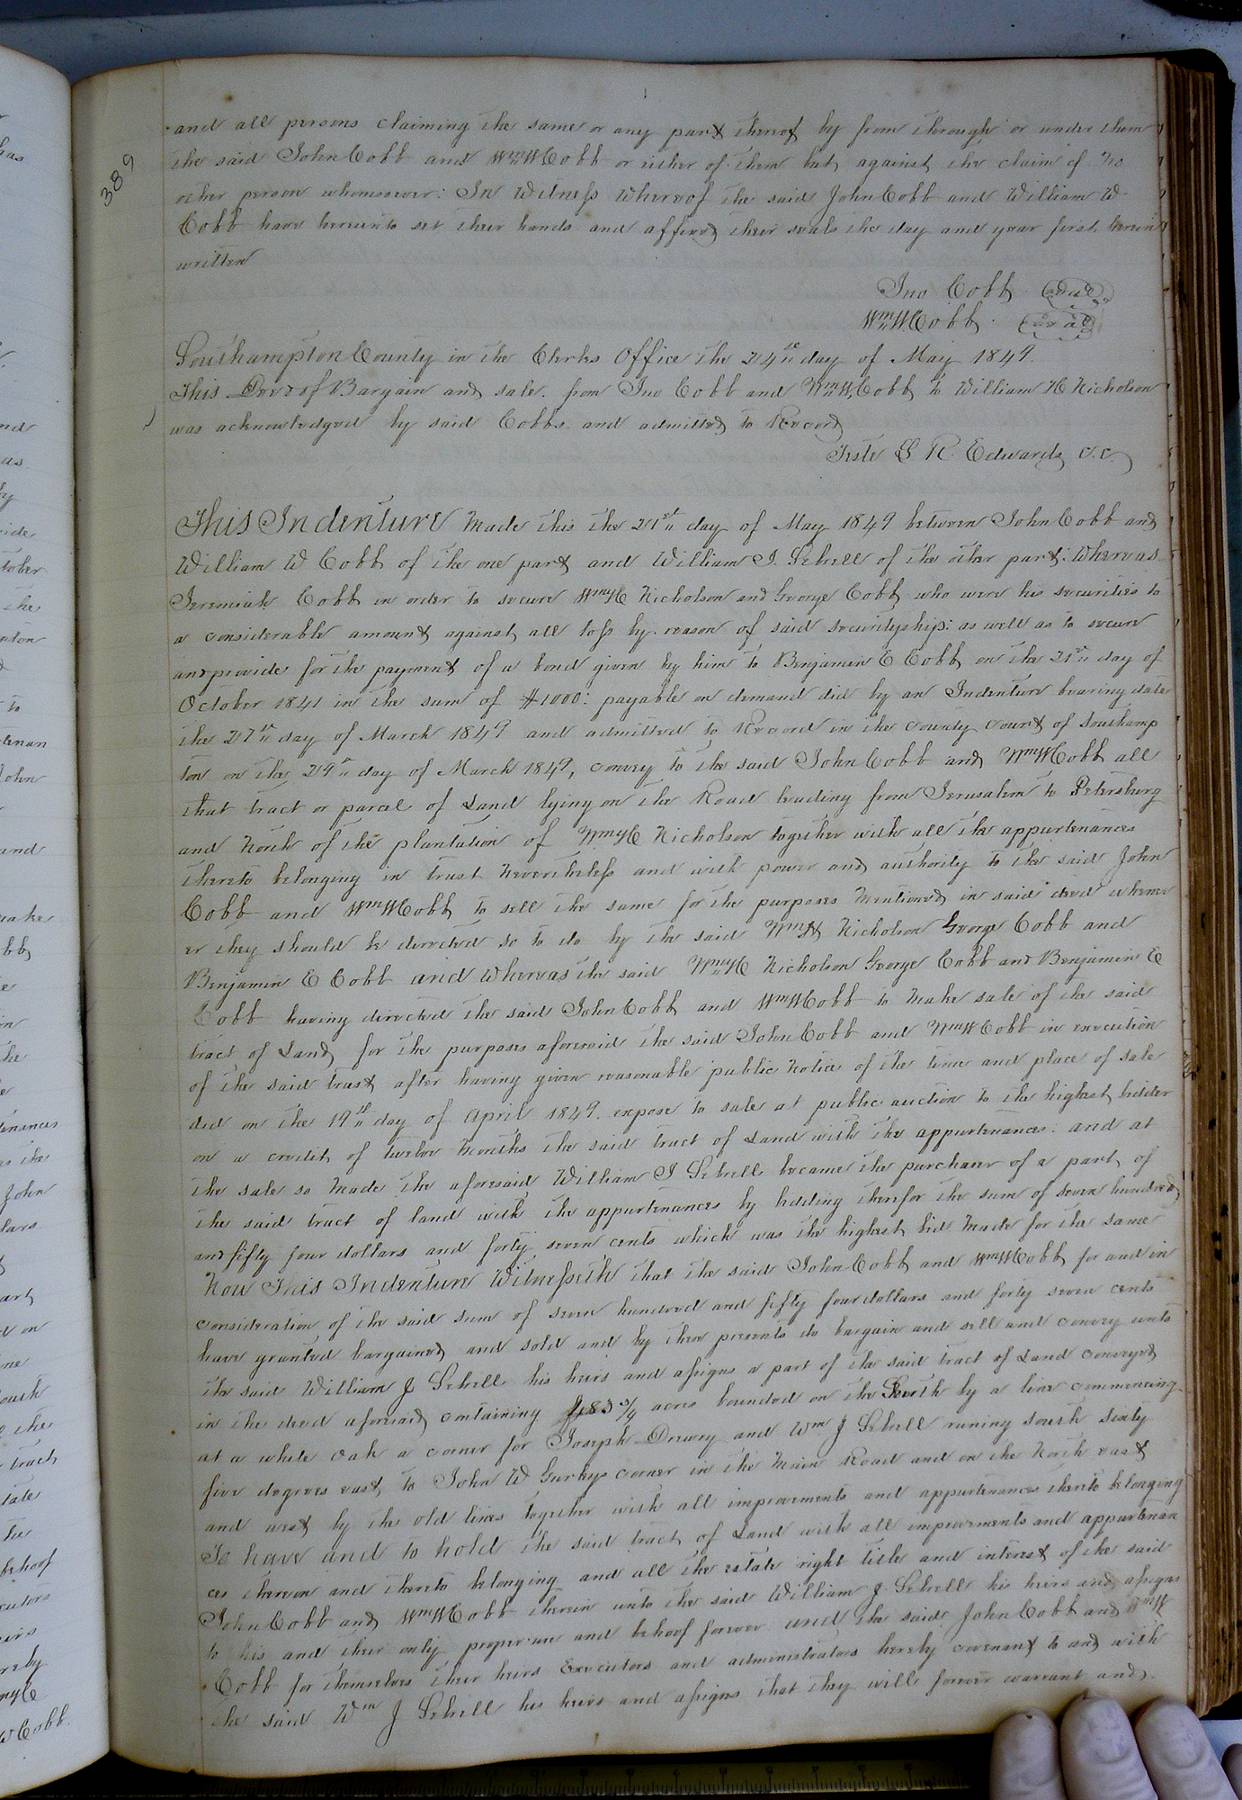 389
and all persons claiming the same or any part thereof by from through or under them
the said John Cobb and Wm W Cobb or either of them but against the claim of no
other person whomsoever: In Witness Whereof the said John Cobb and William W
Cobb have hereunto set their hands and affixed their seals the day and year first herein
written
Jno Cobb (seal)
Wm W Cobb (seal)
Southampton County in the Clerks Office the 24th day of May 1849.
This Deed of Bargain and sale from Jno Cobb and Wm W Cobb to William H Nicholson
was acknowledged by said Cobbs and admitted to Record
Teste L R Edwards c.c.
This Indenture made this the 21st day of May 1849 between John Cobb and
William W Cobb of the one part and William J. Sebrell of the other part: Whereas
Jeremiah Cobb in order to secure Wm H Nicholson and George Cobb who were his securities to
a considerable amount against all loss by reason of said securityship: as well as to secure
and provide for the payment of a bond given by him to Benjamin E Cobb on the 21st day of
October 1841 in the sum of $1000: payable on demand did by an Indenture bearing date
the 27th day of March 1849 and admitted to Record in the County Court of Southamp
ton on the 29th day of March 1849, convey to the said John Cobb and Wm W Cobb all
that tract or parcel of Land lying on the Road leading from Jerusalem to Petersburg
and North of the plantation of Wm H Nicholson together with all the appurtenances
thereto belonging in trust Nevertheless and with power and authority to the said John
Cobb and Wm W Cobb to sell the same for the purposes mentioned in said deed whenev
er they should be directed so to do by the said Wm H Nicholson George Cobb and
Benjamin E Cobb and Whereas the said Wm H Nicholson George Cobb and Benjamin E
Cobb having directed the said John Cobb and Wm W Cobb to make sale of the said
tract of Land for the purposes aforesaid the said John Cobb and Wm W Cobb in execution
of the said trust after having given reasonable public notice of the time and place of sale
did on the 19th day of April 1849. expose to sale at public auction to the highest bidder
on a credit of twelve months the said tract of Land with the appurtenances: and at
the sale so made the aforesaid William J Sebrell became the purchaser of a part of
the said tract of land with the appurtenances by bidding therefor the sum of seven hundred
and fifty four dollars and forty seven cents which was the highest bid made for the same
Now This Indenture Witnesseth that the said John Cobb and Wm W Cobb for and in
consideration of the said sum of seven hundred and fifty four dollars and forty seven cents
have granted bargained and sold and by these presents do bargain and sell and convey unto
the said William J Sebrell his heirs and assigns a part of the said tract of Land conveyed
in the deed aforesaid containing 183 3/4 acres bounded on the South by a line commencing
at a white oak a corner for Joseph Drewry and Wm J Sebrell runing south sixty
five degrees east to John W Gurleys corner in the Main Road and on the North east
and west by the old lines together with all improvements and appurtenances thereto belonging
To have and to hold the said tract of Land with all improvements and appurtenan
ces thereon and thereto belonging and all the estate right title and interest of the said
John Cobb and Wm W Cobb therein unto the said William J. Sebrell his heirs and assigns
to his and their only proper use and behoof forever and the said John Cobb and Wm W
Cobb for themselves their heirs Executors and administrators hereby covenant to and with
the said Wm J Sebrell his heirs and assigns that they will forever warrant and